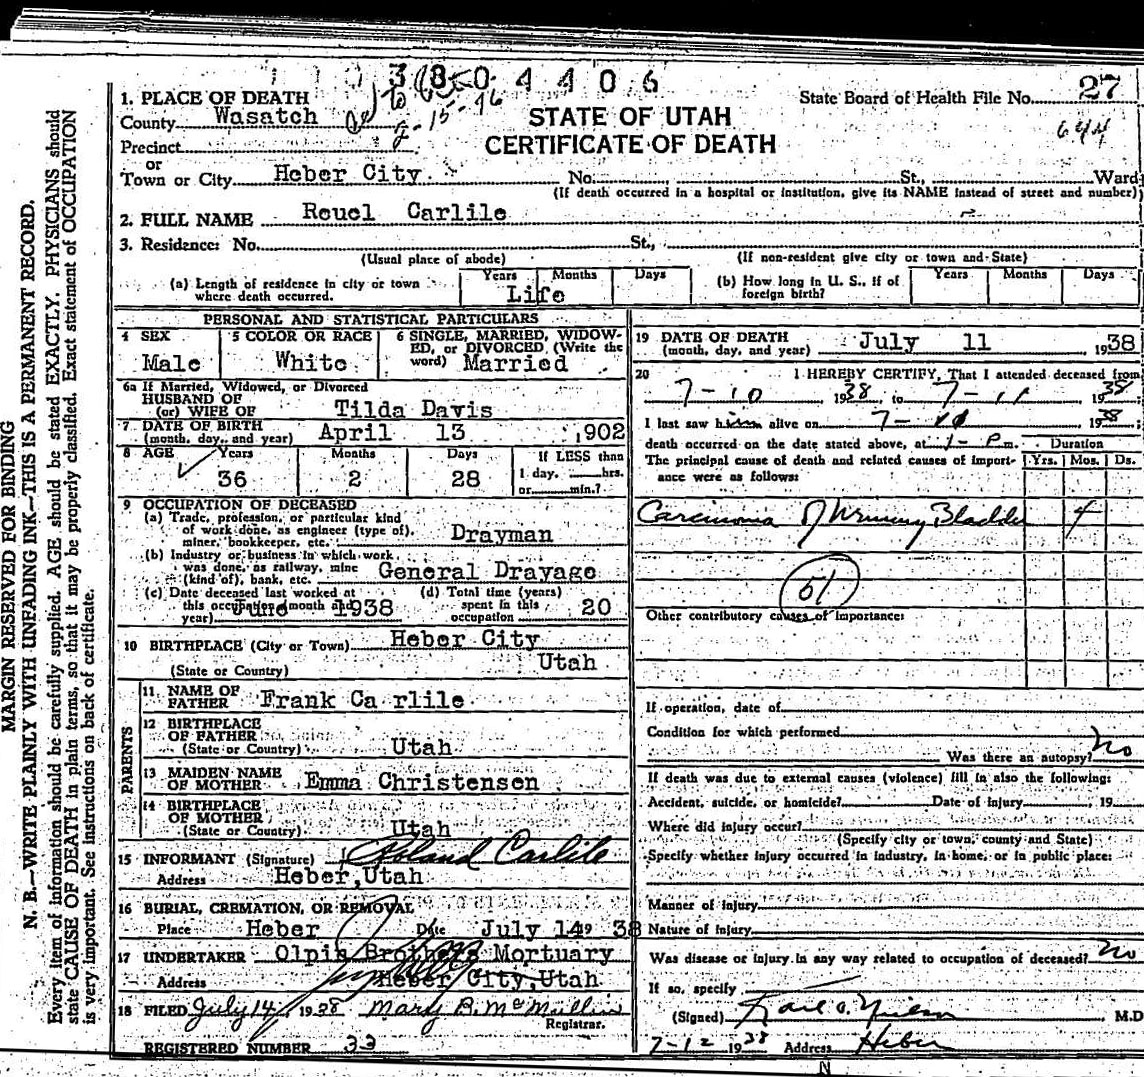 3 8 0 4 4 0 6
27
644
State Board of Health File No.
STATE OF UTAH
CERTIFICATE OF DEATH
1. PLACE OF DEATH
County Wasatch
Precinct
or
Town or City Heber City. No. St., Ward
(If death occurred in a hospital or institution, give its NAME instead of street and number)
2. FULL NAME Reuel Carlile
3. Residence: No. St.,
(Usual place of abode) (If non-resident give city or town and State)
(a) Length of residence in city or town where death occurred. Years Months Days
Life
(b) How long in U. S., if of foreign birth? Years Months Days
PERSONAL AND STATISTICAL PARTICULARS
4 SEX
Male
5 COLOR OR RACE
White
6 SINGLE, MARRIED, WIDOW-
ED, or DIVORCED (Write the
word) Married
6a If Married, Widowed, or Divorced
HUSBAND OF
(or) WIFE OF Tilda Davis
7 DATE OF BIRTH
(month, day, and year) April 13 1902
8 AGE Years Months Days If LESS than
36 2 28 1 day, hrs.
or min.?
9 OCCUPATION OF DECEASED
(a) Trade, profession, or particular kind
of work done, as engineer (type of),
miner, bookkeeper, etc. Drayman
(b) Industry or business in which work
was done, as railway, mine
(kind of), bank, etc. General Drayage
(c) Date deceased last worked at
this occupation (month and
year) June 1938
(d) Total time (years)
spent in this
occupation 20
10 BIRTHPLACE (City or Town) Heber City
(State or Country) Utah
PARENTS
11 NAME OF
FATHER Frank Ca rlile
12 BIRTHPLACE
OF FATHER
(State or Country) Utah
13 MAIDEN NAME
OF MOTHER Emma Christensen
14 BIRTHPLACE
OF MOTHER
(State or Country) Utah
15 INFORMANT (Signature) Roland Carlile
Address Heber, Utah
16 BURIAL, CREMATION, OR REMOVAL
Place Heber Date July 14 19 38
17 UNDERTAKER Olpin Brothers Mortuary
Address Heber City, Utah
18 FILED July 14 1938 Mary B. McMullin
Registrar.
REGISTERED NUMBER 33
19 DATE OF DEATH
(month, day, and year) July 11 1938
20 I HEREBY CERTIFY, That I attended deceased from
7-10 1938 to 7-11 1938;
I last saw him alive on 7-10 1938;
death occurred on the date stated above, at 1- P.m. Duration
The principal cause of death and related causes of import-
ance were as follows: Yrs. Mos. Ds.
Carcinoma of Urinary Bladder 4
51
Other contributory causes of importance:
If operation, date of
Condition for which performed
Was there an autopsy? No
If death was due to external causes (violence) fill in also the following:
Accident, suicide, or homicide? Date of injury , 19
Where did injury occur?
(Specify city or town, county and State)
Specify whether injury occurred in industry, in home, or in public place:
Manner of Injury
Nature of Injury
Was disease or injury in any way related to occupation of deceased? No
If so, specify
(Signed) Karl O. Nielson M.D.
7-12 1938 Address Heber
N
MARGIN RESERVED FOR BINDING
N. B.—WRITE PLAINLY WITH UNFADING INK—THIS IS A PERMANENT RECORD.
Every item of information should be carefully supplied. AGE should be stated EXACTLY. PHYSICIANS should
state CAUSE OF DEATH in plain terms, so that it may be properly classified. Exact statement of OCCUPATION
is very important. See instructions on back of certificate.